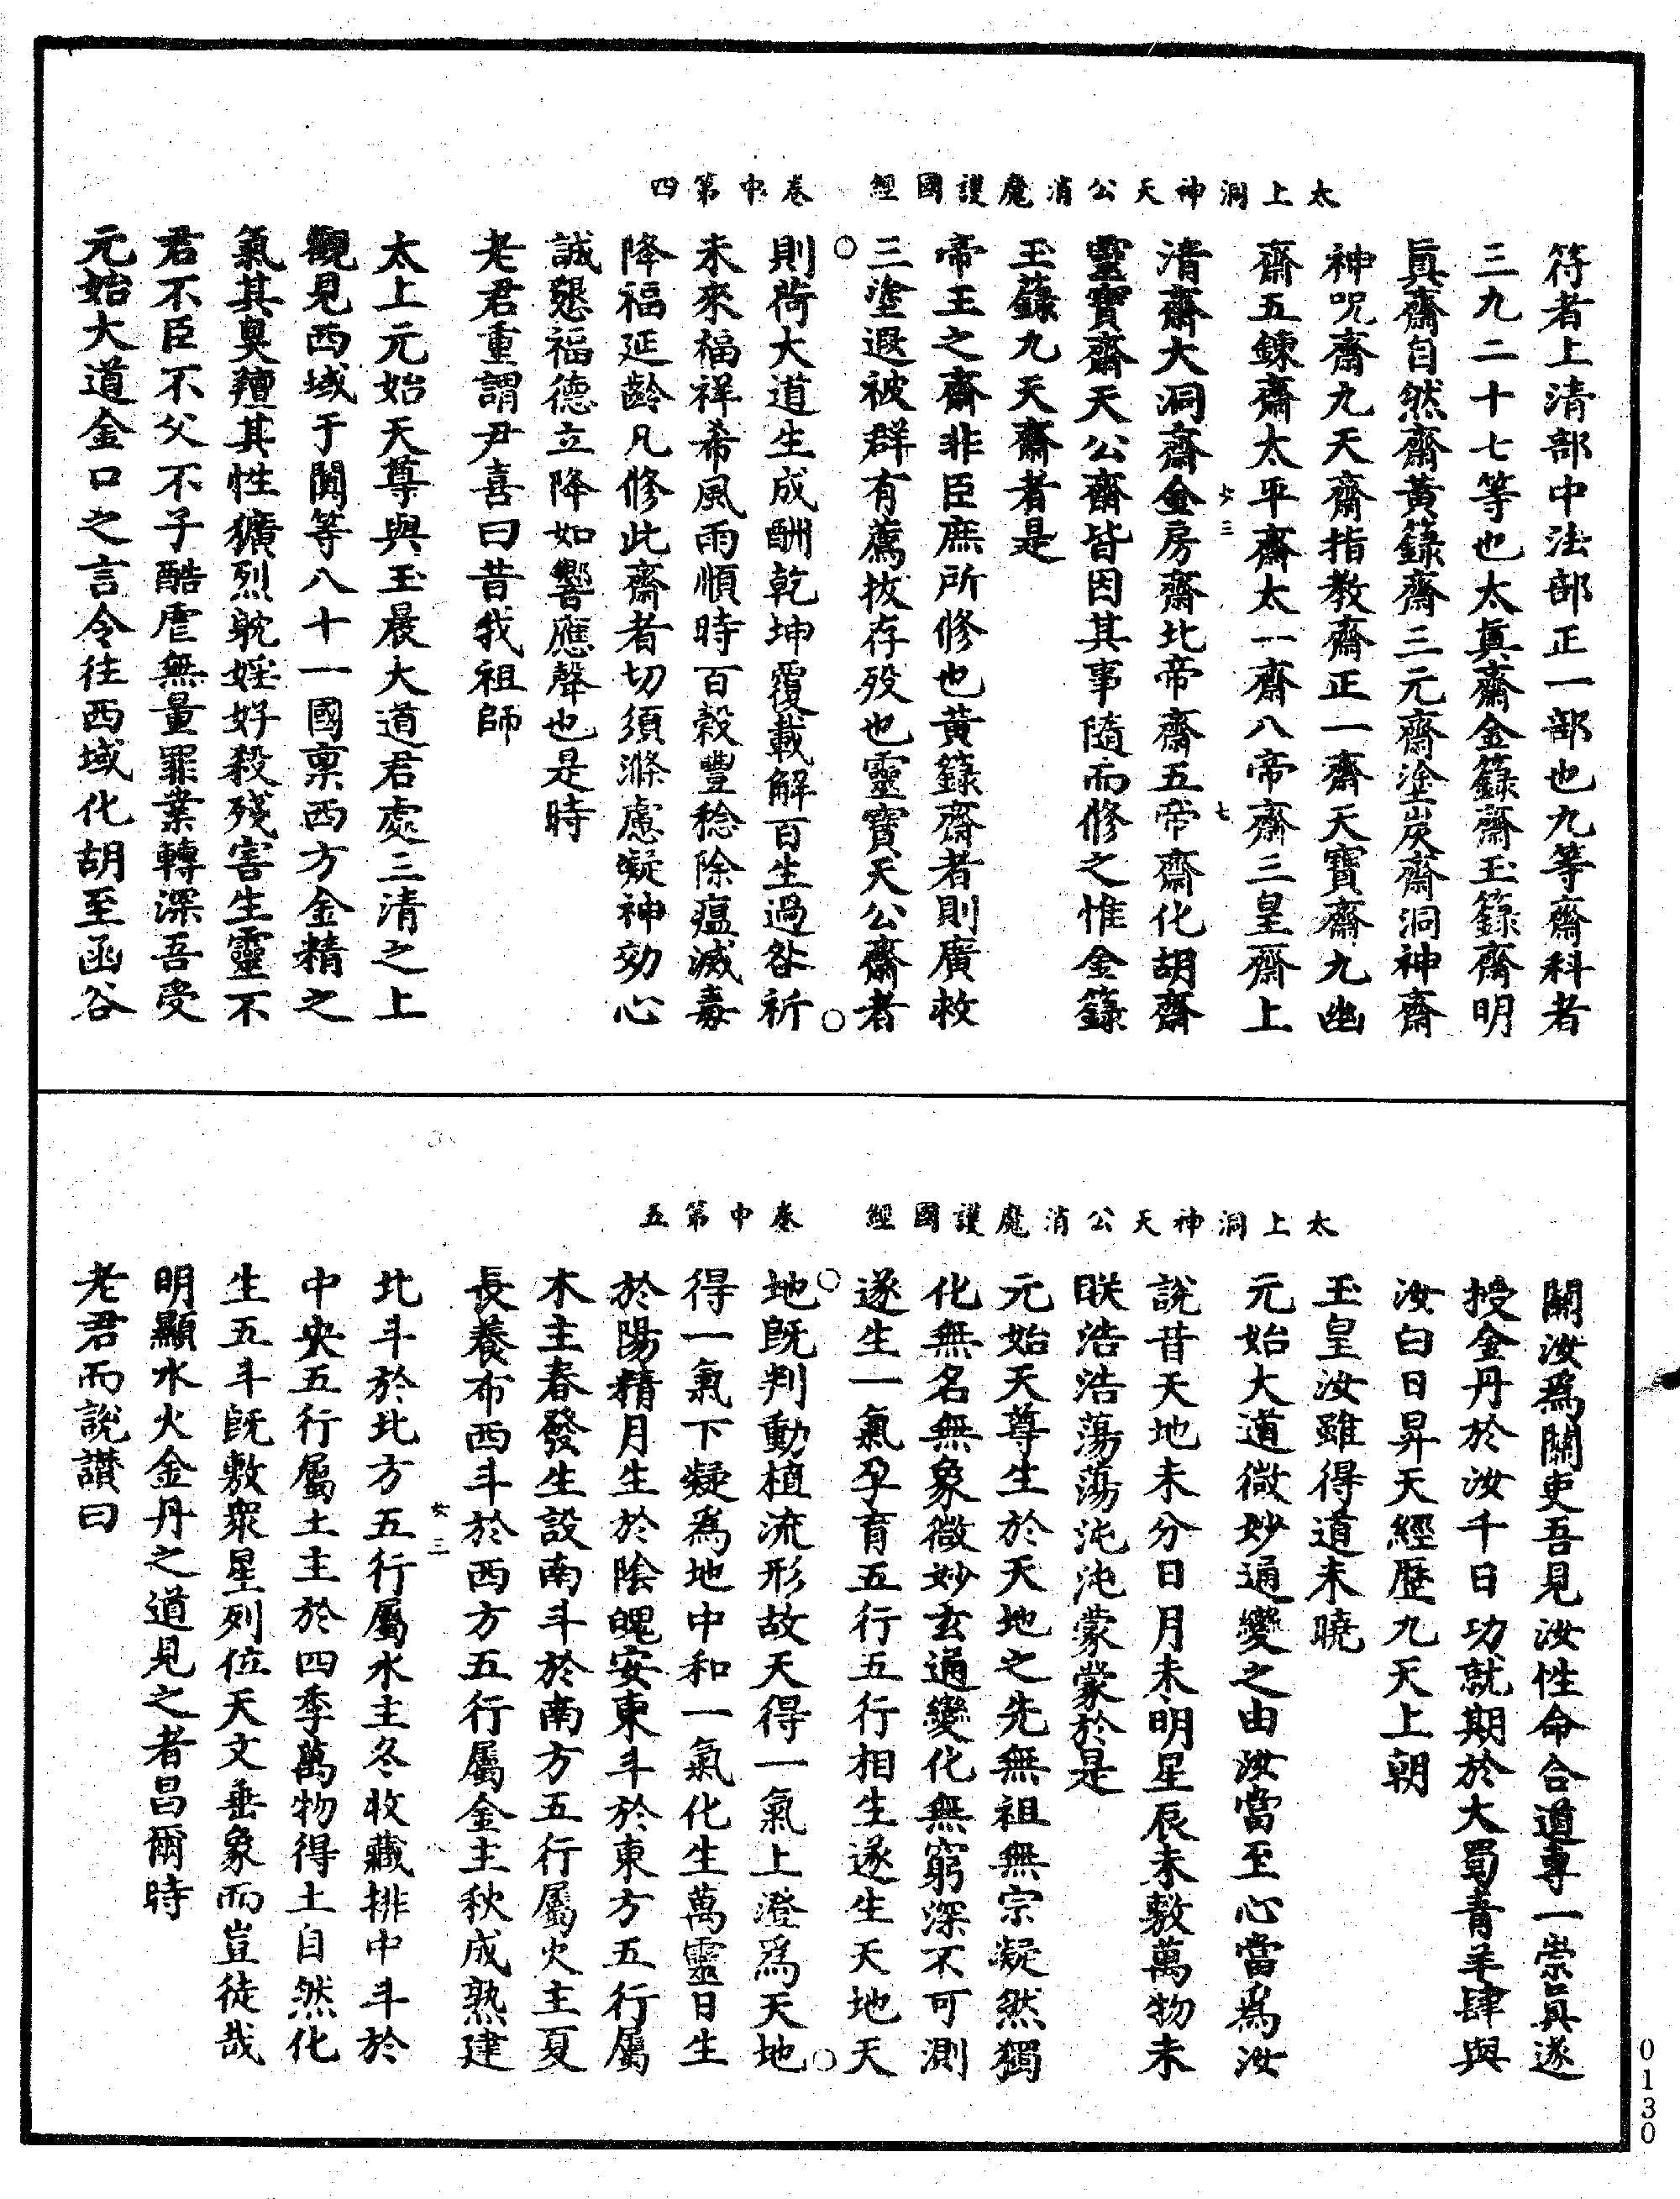 太上洞神天公消魔護國經　卷中第四
符者上清部中法部正一部也九等齋科者
三九二十七等也太眞齋金籙齋玉籙齋明
眞齋自然齋黃籙齋三元齋塗炭齋洞神齋
神呪齋九天齋指教齋正一齋天寶齋九幽
齋五鍊齋太平齋太一齋八帝齋三皇齋上
清齋大洞齋金房齋北帝齋五帝齋化胡齋
靈寶齋天公齋皆因其事隨而修之惟金籙
玉籙九天齋者是
帝王之齋非臣庶所修也黃籙齋者則廣救
三塗遐被群有薦拔存歿也靈寶天公齋者
則荷大道生成酬乾坤覆載解百生過咎祈
未來福祥希風雨順時百穀豐稔除瘟滅毒
降福延齡凡修此齋者切須滌慮凝神効心
誠懇福德立降如響應聲也是時
老君重謂尹喜曰昔我祖師
太上元始天尊與玉晨大道君處三清之上
觀見西域于闐等八十一國稟西方金精之
氣其臭羶其性獷烈躭婬好殺殘害生靈不
君不臣不父不子酷虐無量罪業轉深吾受
元始大道金口之言令往西域化胡至函谷
太上洞神天公消魔護國經　卷中第五
關汝爲關吏吾見汝性命合道專一崇眞遂
授金丹於汝千日功就期於大蜀青羊肆與
汝白日昇天經歷九天上朝
玉皇汝雖得道未曉
元始大道微妙通變之由汝當至心當爲汝
說昔天地未分日月未明星辰未敷萬物未
眹浩浩蕩蕩沌沌蒙蒙於是
元始天尊生於天地之先無祖無宗凝然獨
化無名無象微妙玄通變化無窮深不可測
遂生一氣孕育五行五行相生遂生天地天
地旣判動植流形故天得一氣上澄爲天地
得一氣下凝爲地中和一氣化生萬靈日生
於陽精月生於陰魄安東斗於東方五行屬
木主春發生設南斗於南方五行屬火主夏
長養布西斗於西方五行屬金主秋成熟建
北斗於北方五行屬水主冬收藏排中斗於
中央五行屬土主於四季萬物得土自然化
生五斗旣敷衆星列位天文垂象而豈徒哉
明顯水火金丹之道見之者昌爾時
老君而說讃曰
0130